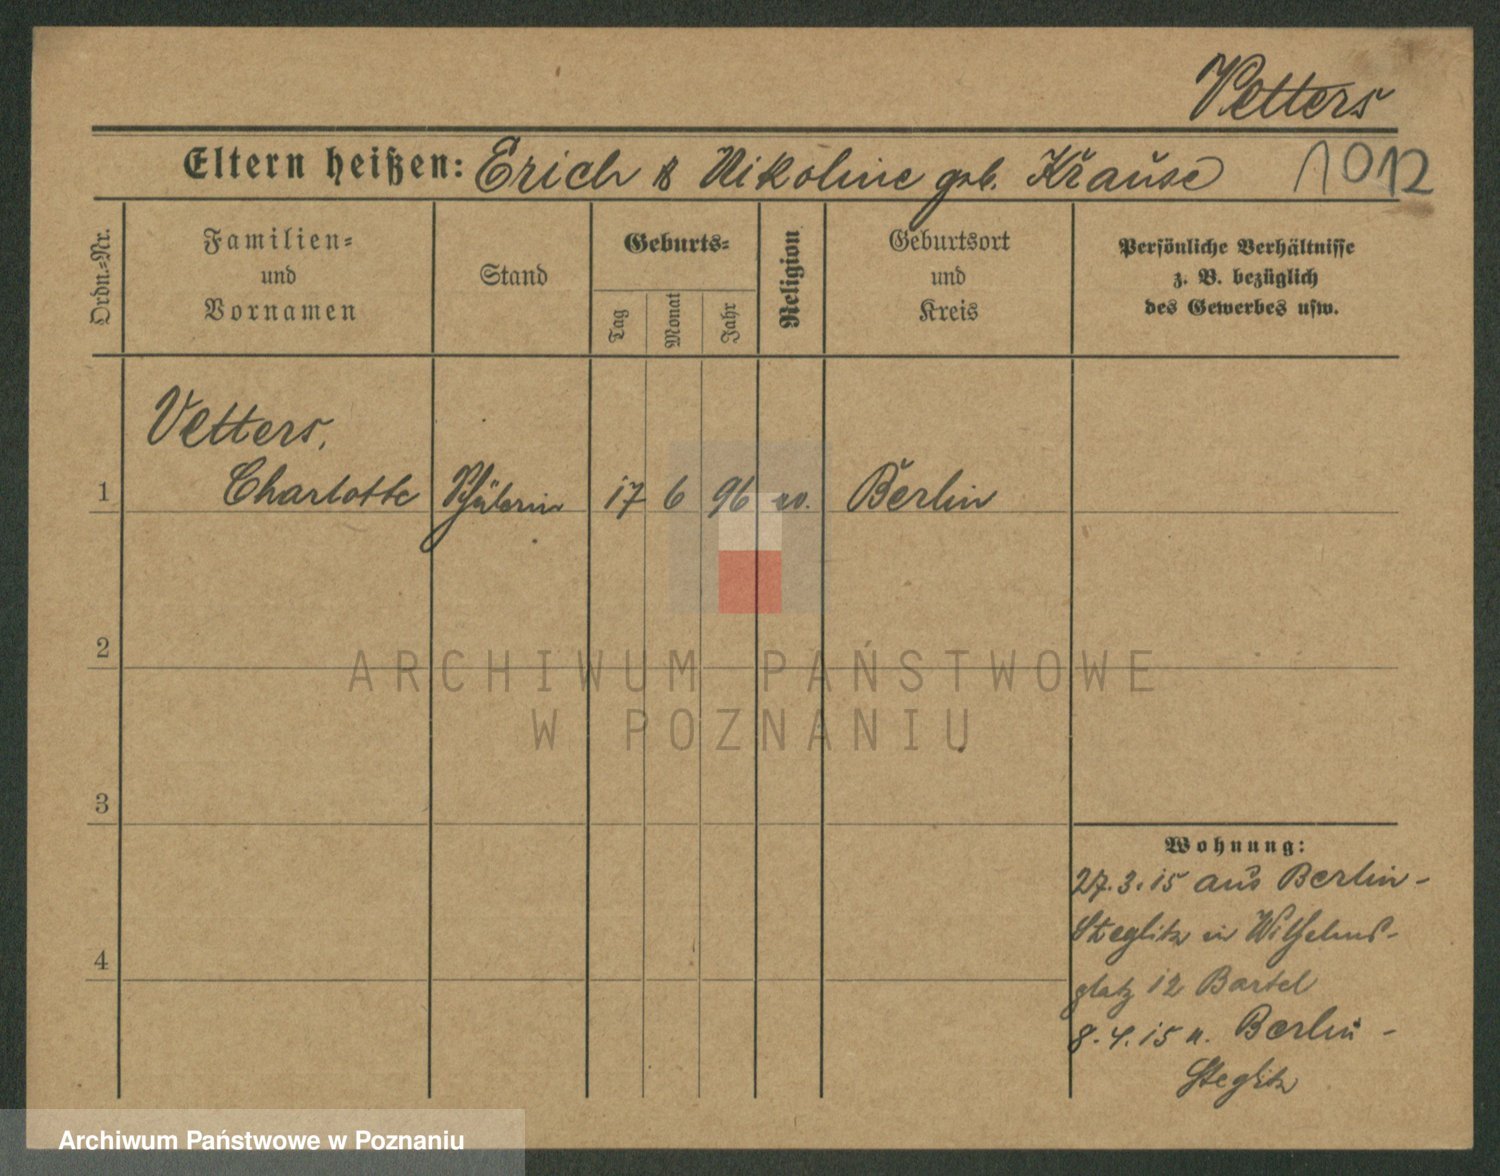 Vetters
Eltern heißen: Erich & Nikoline geb. Krause 1012
Ordn.-Nr.
Familien-
und
Vornamen
Stand
Geburts-
Tag
Monat
Jahr
Religion
Geburtsort
und
Kreis
Persönliche Verhältnisse
z. B. bezüglich
des Gewerbes usw.
Vetters,
1 Charlotte Schülerin 17 6 96 ev. Berlin
2
ARCHIWUM PAŃSTWOWE
W POZNANIU
3
Wohnung:
27.3.15 aus Berlin-
Steglitz in Wilhelms-
4
platz 12 Bartel
8.4.15 n. Berlin -
Steglitz
Archiwum Państwowe w Poznaniu